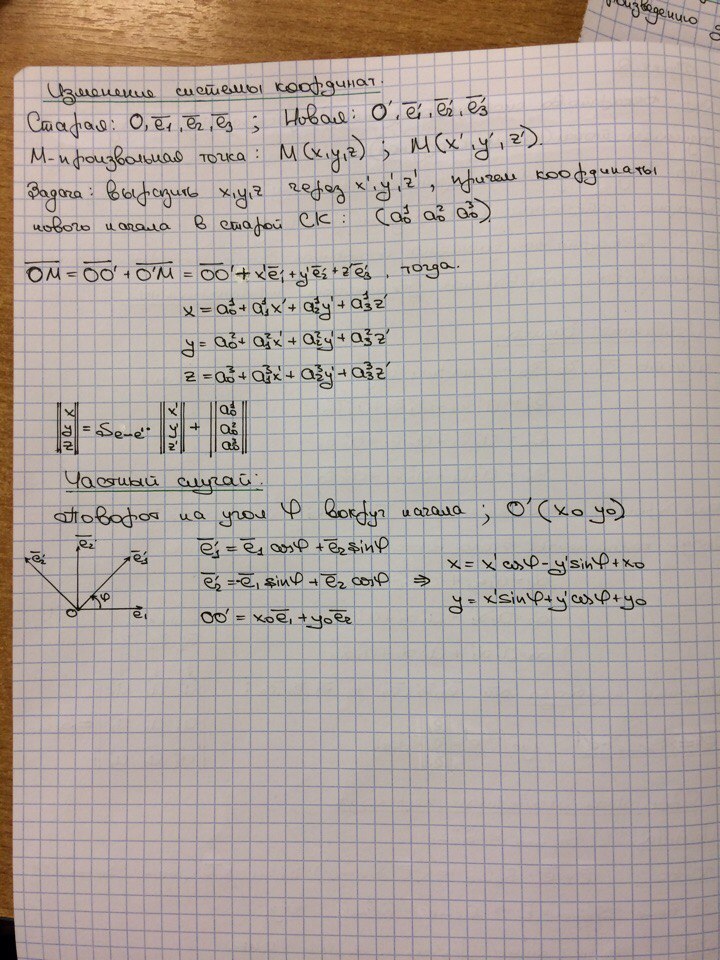 произведению
Изменение системы координат.
Старая: O, e̅₁, e̅₂, e̅₃ ; Новая: O', e̅₁', e̅₂', e̅₃'
M-произвольная точка: M(x,y,z) ; M(x', y', z').
Задача: выразить x,y,z через x', y', z', причем координаты
нового начала в старой СК: (a₀¹ a₀² a₀³)
O̅M̅ = O̅O̅' + O̅'M̅ = O̅O̅' + x'e̅₁' + y'e̅₂' + z'e̅₃', тогда.
x = a₀¹ + a₁¹x' + a₂¹y' + a₃¹z'
y = a₀² + a₁²x' + a₂²y' + a₃²z'
z = a₀³ + a₁³x' + a₂³y' + a₃³z'
‖x y z‖ = S e-e'· ‖x' y' z'‖ + ‖a₀¹ a₀² a₀³‖
Частный случай:
Поворот на угол φ вокруг начала ; O'(x₀ y₀)
e̅₂' e̅₂ e̅₁' φ O e̅₁
e̅₁' = e̅₁ cosφ + e̅₂ sinφ
e̅₂' = -e̅₁ sinφ + e̅₂ cosφ ⇒
OO' = x₀e̅₁ + y₀e̅₂
x = x'cosφ - y'sinφ + x₀
y = x'sinφ + y'cosφ + y₀